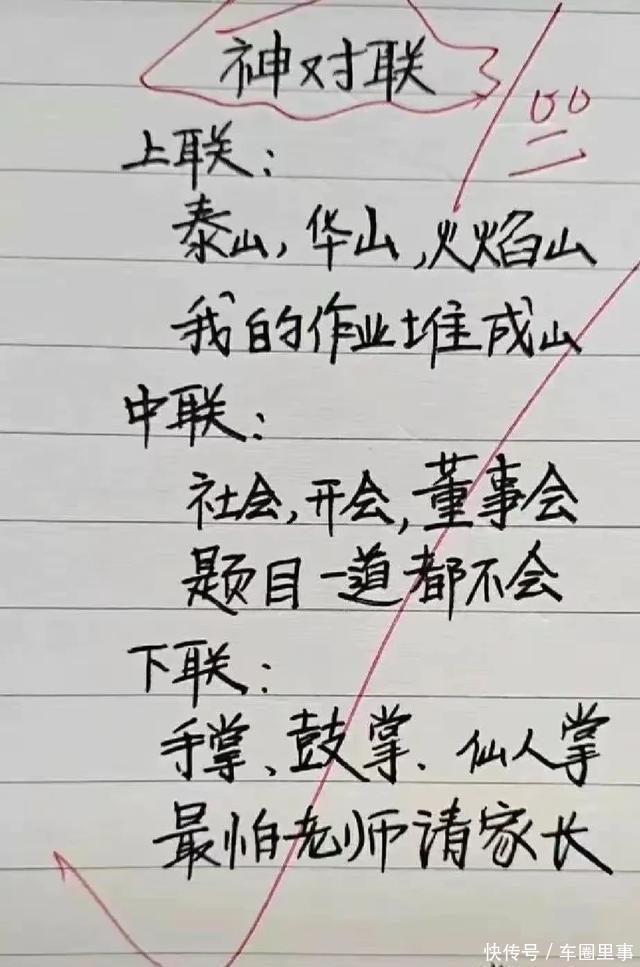 神对联
上联：
泰山，华山，火焰山
我的作业堆成山
中联：
社会，开会，董事会
题目一道都不会
下联：
手掌、鼓掌、仙人掌
最怕老师请家长
快传号/车圈里事